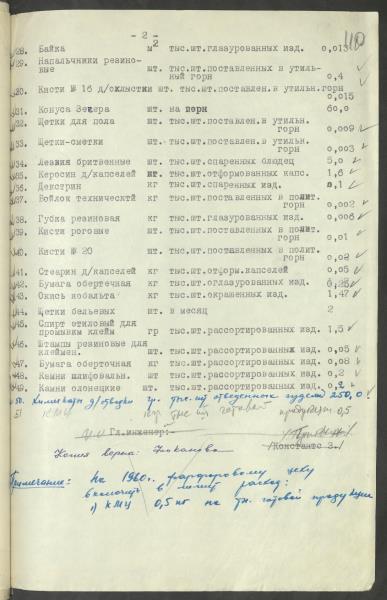 - 2 -
110
28. Байка м2 тыс.шт.глазурованных изд. 0,013
29. Напальчники резино-
вые шт. тыс.шт.поставленных в утиль-
ный горн 0,4
30. Кисти № 16 д/охлыстки шт. тыс.шт.поставлен.в утильн.горн
0,015
31. Конуса Зегера шт. на горн 60,0
32. Щетки для пола шт. тыс.шт.поставлен.в утильн.
горн 0,009
33. Щетки-сметки шт. тыс.шт.поставлен.в утильн.
горн 0,003
34. Лезвия бритвенные шт. тыс.шт.спаренных блюдец 5,0
35. Керосин д/капселей кг тыс.шт.отформованных капс. 1,6
36. Декстрин кг тыс.шт.спаренных изд. 0,1
37. Войлок техническтй кг тыс.шт.поставленных в полит.
горн 0,002
38. Губка резиновая кг тыс.шт.глазурованных изд. 0,006
39. Кисти роговые шт. тыс.шт.поставленных в полит.
горн 0,01
40. Кисти № 20 шт. тыс.шт.поставленных в полит.
горн 0,02
41. Стеарин д/капселей кг тыс.шт.отформ.капселей 0,05
42. Бумага оберточная кг тыс.шт.оглазурованных изд. 0,25
43. Окись кобальта кг тыс.шт.окрашенных изд. 1,47
44. Щетки бельевых шт. в месяц 2
45. Спирт этиловый для
промывки клейм гр тыс.шт.рассортированных изд. 1,5
46. Штампы резиновые для
клеймен. шт. тыс.шт.рассортированных изд. 0,05
47. Бумага оберточная кг тыс.шт.рассортированных изд. 0,08
48. Камни шлифовальн. шт. тыс.шт.рассортированных изд. 0,2
49. Камни олонецкие шт. тыс.шт.рассортированных изд. 0,2
50. гр. тыс. шт 250,0
51 КМЦ тыс шт готовой продукции 0,5
Гл.инженер:-
/Константо З./
Копия верна:
Примечание: На 1960г. фарфоровому цеху
включить в лимит расход:
1) КМЦ 0,5 кг на тн. готовой продукции